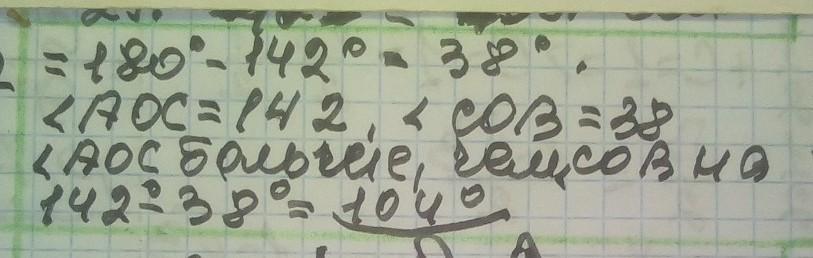 = 180° - 142° = 38°.
< AOC = 142, < COB = 38
< AOC больше, чем COB на
142° - 38° = 104°